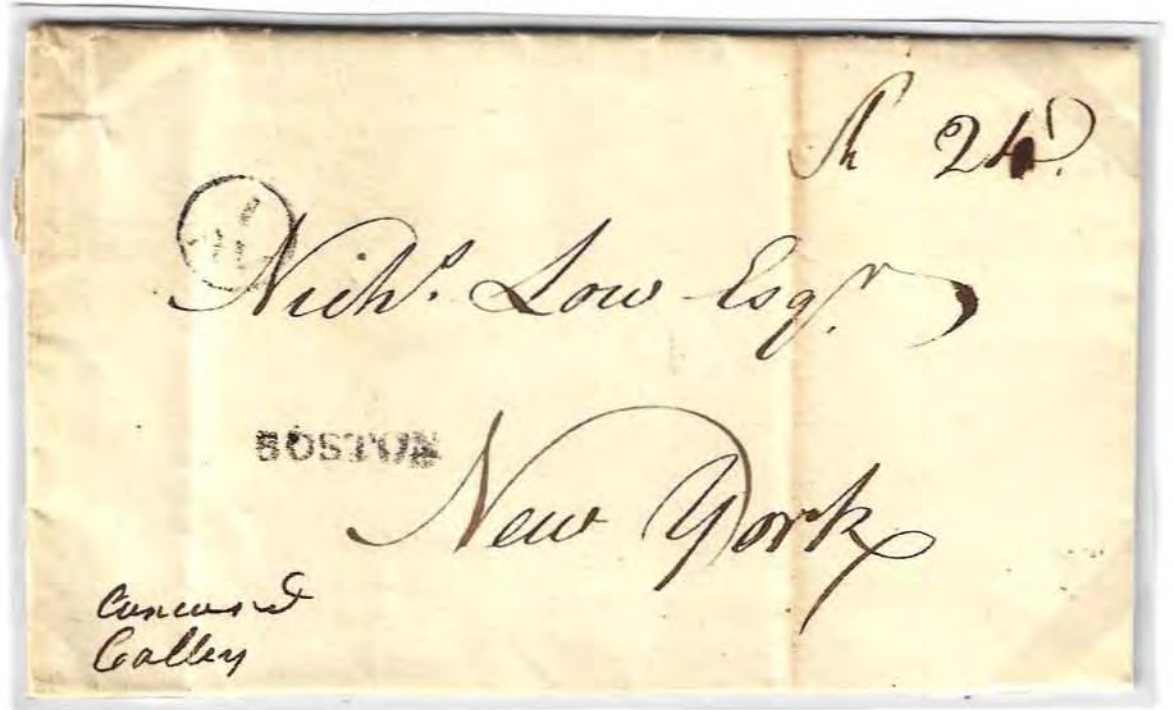 24
Nichs. Low Esqr.
BOSTON
New York
Concord
Colley